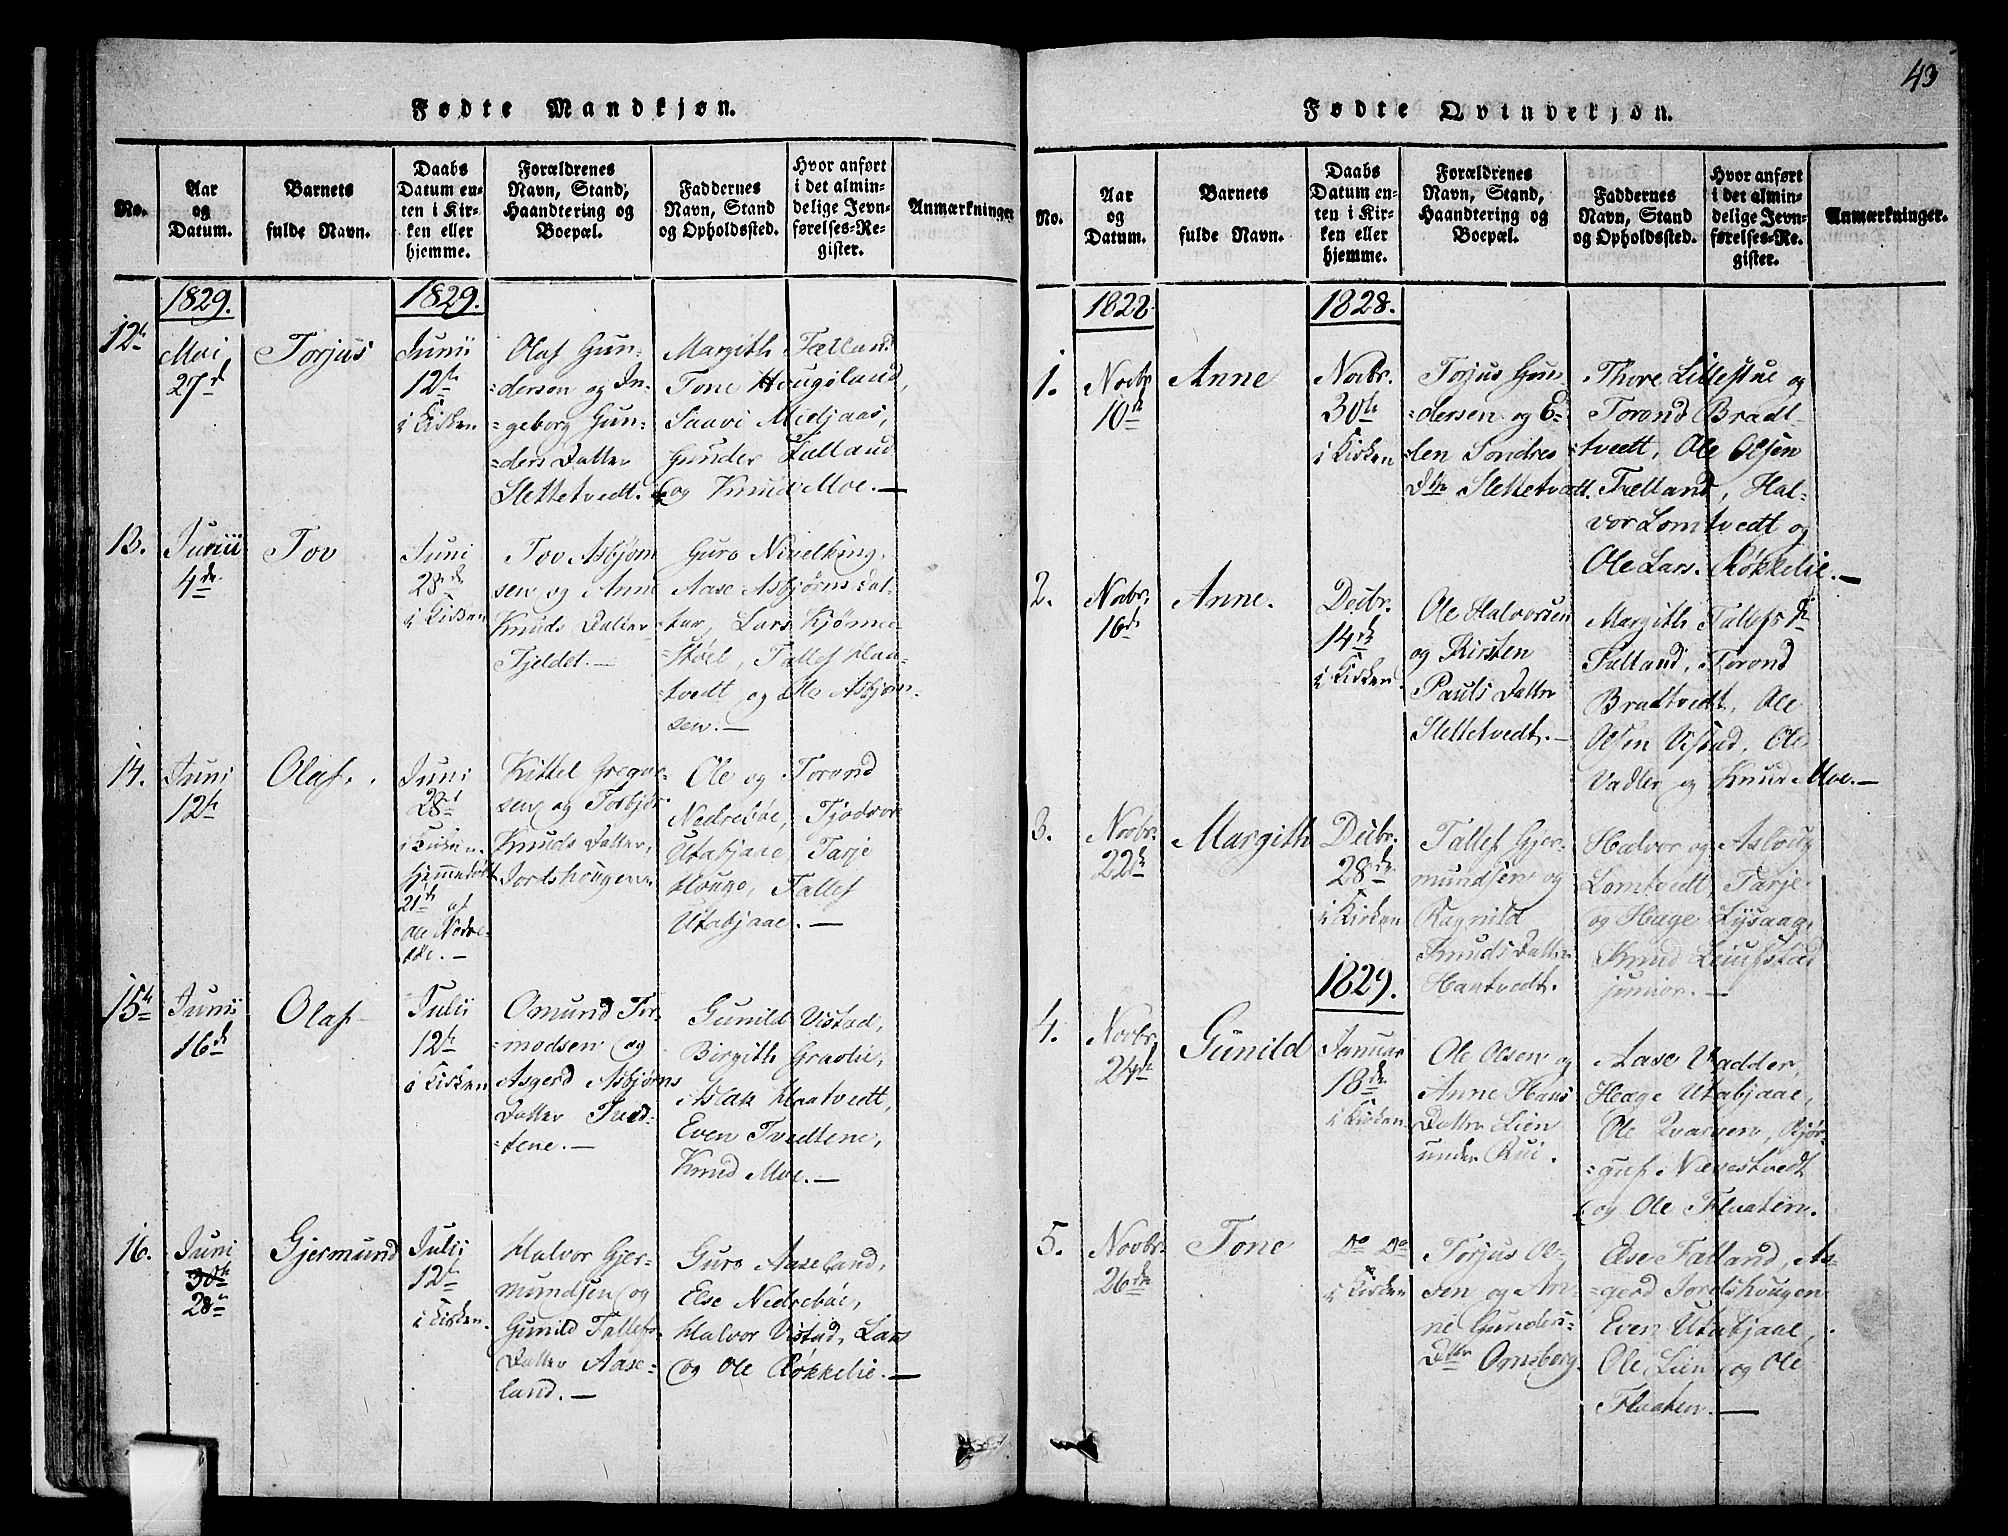 43
Fødte Mandkjøn.
No.
Aar
og
Datum.
Barnets
fulde Navn.
Daabs
Datum en-
ten i Kir-
ken eller
hjemme.
Forældrenes
Navn, Stand,
Haandtering og
Boepæl.
Faddernes
Navn, Stand
og Opholdssted.
Hvor anført
i det almin-
delige Jevn-
førelses-Re-
gister.
Anmærkninger
1829.
1829.
12te
Mai
27d
Torjus
Junii
12te
i Kirken
Olaf Gun-
=dersen og In-
=geborg Gun-
=ders Datter
Slettetvedt.
Margith Fælland
Tone Hougsland,
Saavi Midjaas,
Gunder Fælland
og Knud Moe. —
13.
Junii
4de
Tov
Juni
28de
i Kirken
Tov Asbjørn
sen og Anne
Knuds Datter
Fjeldet. —
Guro Nivelking,
Aase Asbjørns Dat-
=ter, Lars Kjønne-
=støel, Tallef Haa-
=tvedt og Ole Asbjørn-
sen. —
14.
Juni
12te
Olaf.
Juni
28d
i Kirken.
hjemmedøbt
21de af
Ole Nedre-
bøe. —
Kittel Gregar-
sen og Torbjør
Knuds Datter,
Jordshougen
Ole og Torond
Nedrebøe, Tjodvor
Utabjaae, Tarje
Houge, Tallef
Utabjaae. —
15de
Junii
16de
Olaf
Julii
12te
i Kirken
Omund Tor-
=modsen og
Asgerd Asbjørns
Datter Tved-
=tene. —
Gunild Vistad,
Birgith Graalie,
Aslak Haatvedt,
Even Tvedtene,
Knud Moe. —
16.
Juni
30te
28de
Gjermund
Julii
12te
i Kirken.
Halvor Gjer-
mundsen og
Gunild Tallefs
Datter Aase-
land. —
Guro Aaseland,
Else Nedrebøe,
Halvor Vistad, Lars
og Ole Røkkelie. —
Fødte Qvindekjøn.
No.
Aar
og
Datum.
Barnets
fulde Navn.
Daabs
Datum en-
ten i Kir-
ken eller
hjemme.
Forældrenes
Navn, Stand,
Haandtering og
Boepæl.
Faddernes
Navn, Stand
og Opholdssted.
Hvor anført
i det almin-
delige Jevn-
førelses-Re-
gister.
Anmærkninger.
1828.
1828.
1.
Novbr.
10de
Anne
Novbr.
30te
i Kirken
Torjus Gun-
=dersen og E-
=len Sondres
Dtr Slettetvedt.
Thore Lillestue og
Torond Bradt-
=tvedt, Ole Olsen
Fælland, Hal-
vor Lomtvedt og
Ole Lars. Røkkelie. —
2.
Novbr.
16de
Anne.
Decbr.
14de
i Kirken
Ole Halvorsen
og Kirsten
Pauls Datter
Slettetvedt. —
Margith Tallefs D.
Fælland, Torond
Bradtvedt, Ole
Vistad, Ole
Vadler og Knud Moe. —
3.
Novbr.
22de
Margith
Decbr.
28de
i Kirken
Tallef Gjer-
mundsen og
Ragnild
Knuds Datter
Haatvedt.
Halvor og Aslaug
Lomtvedt, Tarje
og Hæge Lysaae,
Knud Leiufstad
junior. —
1829.
4.
Novbr.
24de
Gunild
Januar
18de
i Kirken
Ole Olsen og
Anne Hans
Datter Lien
under Rui.
Aase Vadder,
Hæge Utabjaae,
Ole Qvasven, Bjør-
=guf Nævestvedt
og Ole Flaaten.
5.
Novbr.
26de
Tone
Do Do
i Kirken
Torjus Ol-
sen og An-
ne Gunders-
Dttr Ornsberg.
Else Fælland, As-
gerd Jordshougen
Even Utabjaae,
Ole Lien og Ole
Flaaten. —